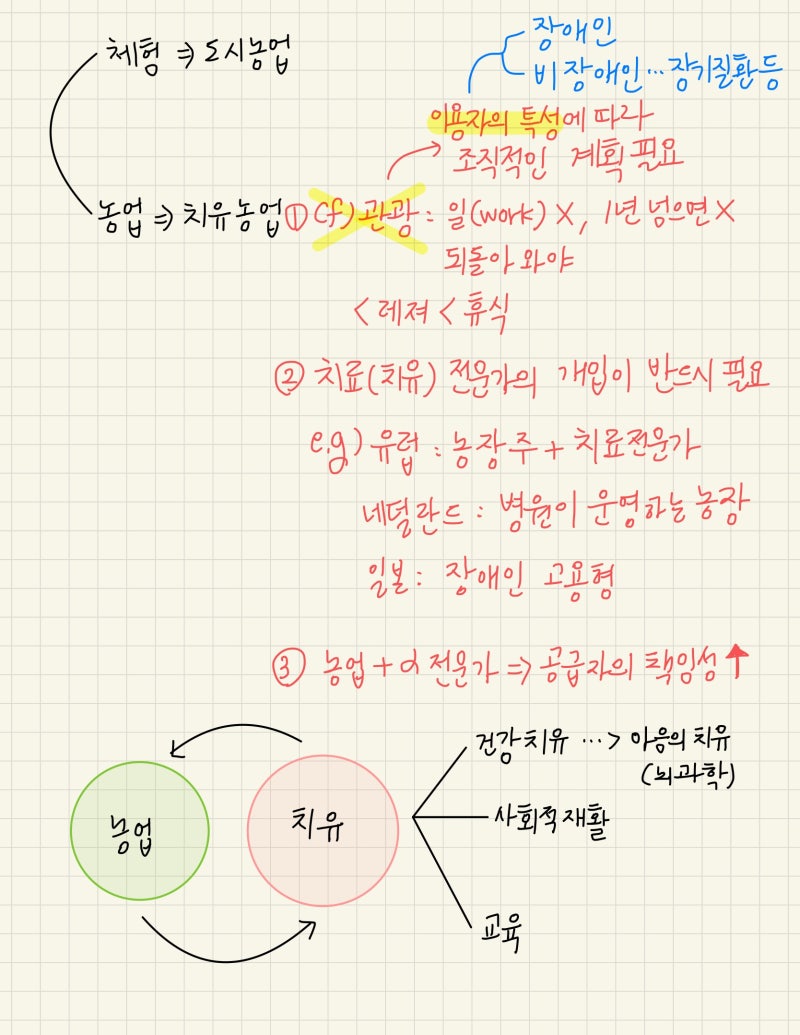 체험 ⇒ 도시농업
장애인
비장애인…장기질환등
이용자의 특성에 따라
조직적인 계획 필요
농업 ⇒ 치유농업 ① cf) 관광 : 일(work) X, 1년 넘으면 X
되돌아 와야
< 레져 < 휴식
② 치료(치유) 전문가의 개입이 반드시 필요
e.g) 유럽 : 농장주 + 치료전문가
네덜란드 : 병원이 운영하는 농장
일본 : 장애인 고용형
③ 농업 + α 전문가 ⇒ 공급자의 책임성 ↑
농업
치유
건강치유 …> 마음의 치유
(뇌과학)
사회적재활
교육